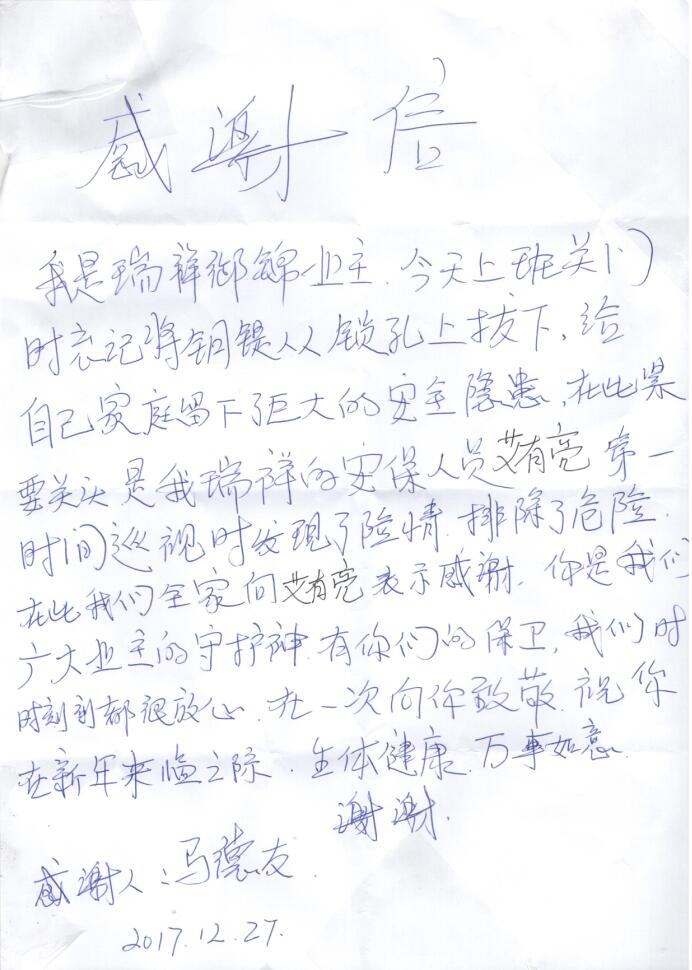 感谢信
我是瑞祥御锦业主.今天上班关门
时忘记将钥匙从锁孔上拔下,给
自己家庭留下了巨大的安全隐患,在此紧
要关头是我瑞祥的安保人员艾有亮第一
时间巡视时发现了险情.排除了危险.
在此我们全家向艾有亮表示感谢.你是我们
广大业主的守护神.有你们的保卫,我们时
时刻刻都很放心.在一次向你致敬.祝你
在新年来临之际.生体健康.万事如意.
谢谢.
感谢人:马德友.
2017.12.27.